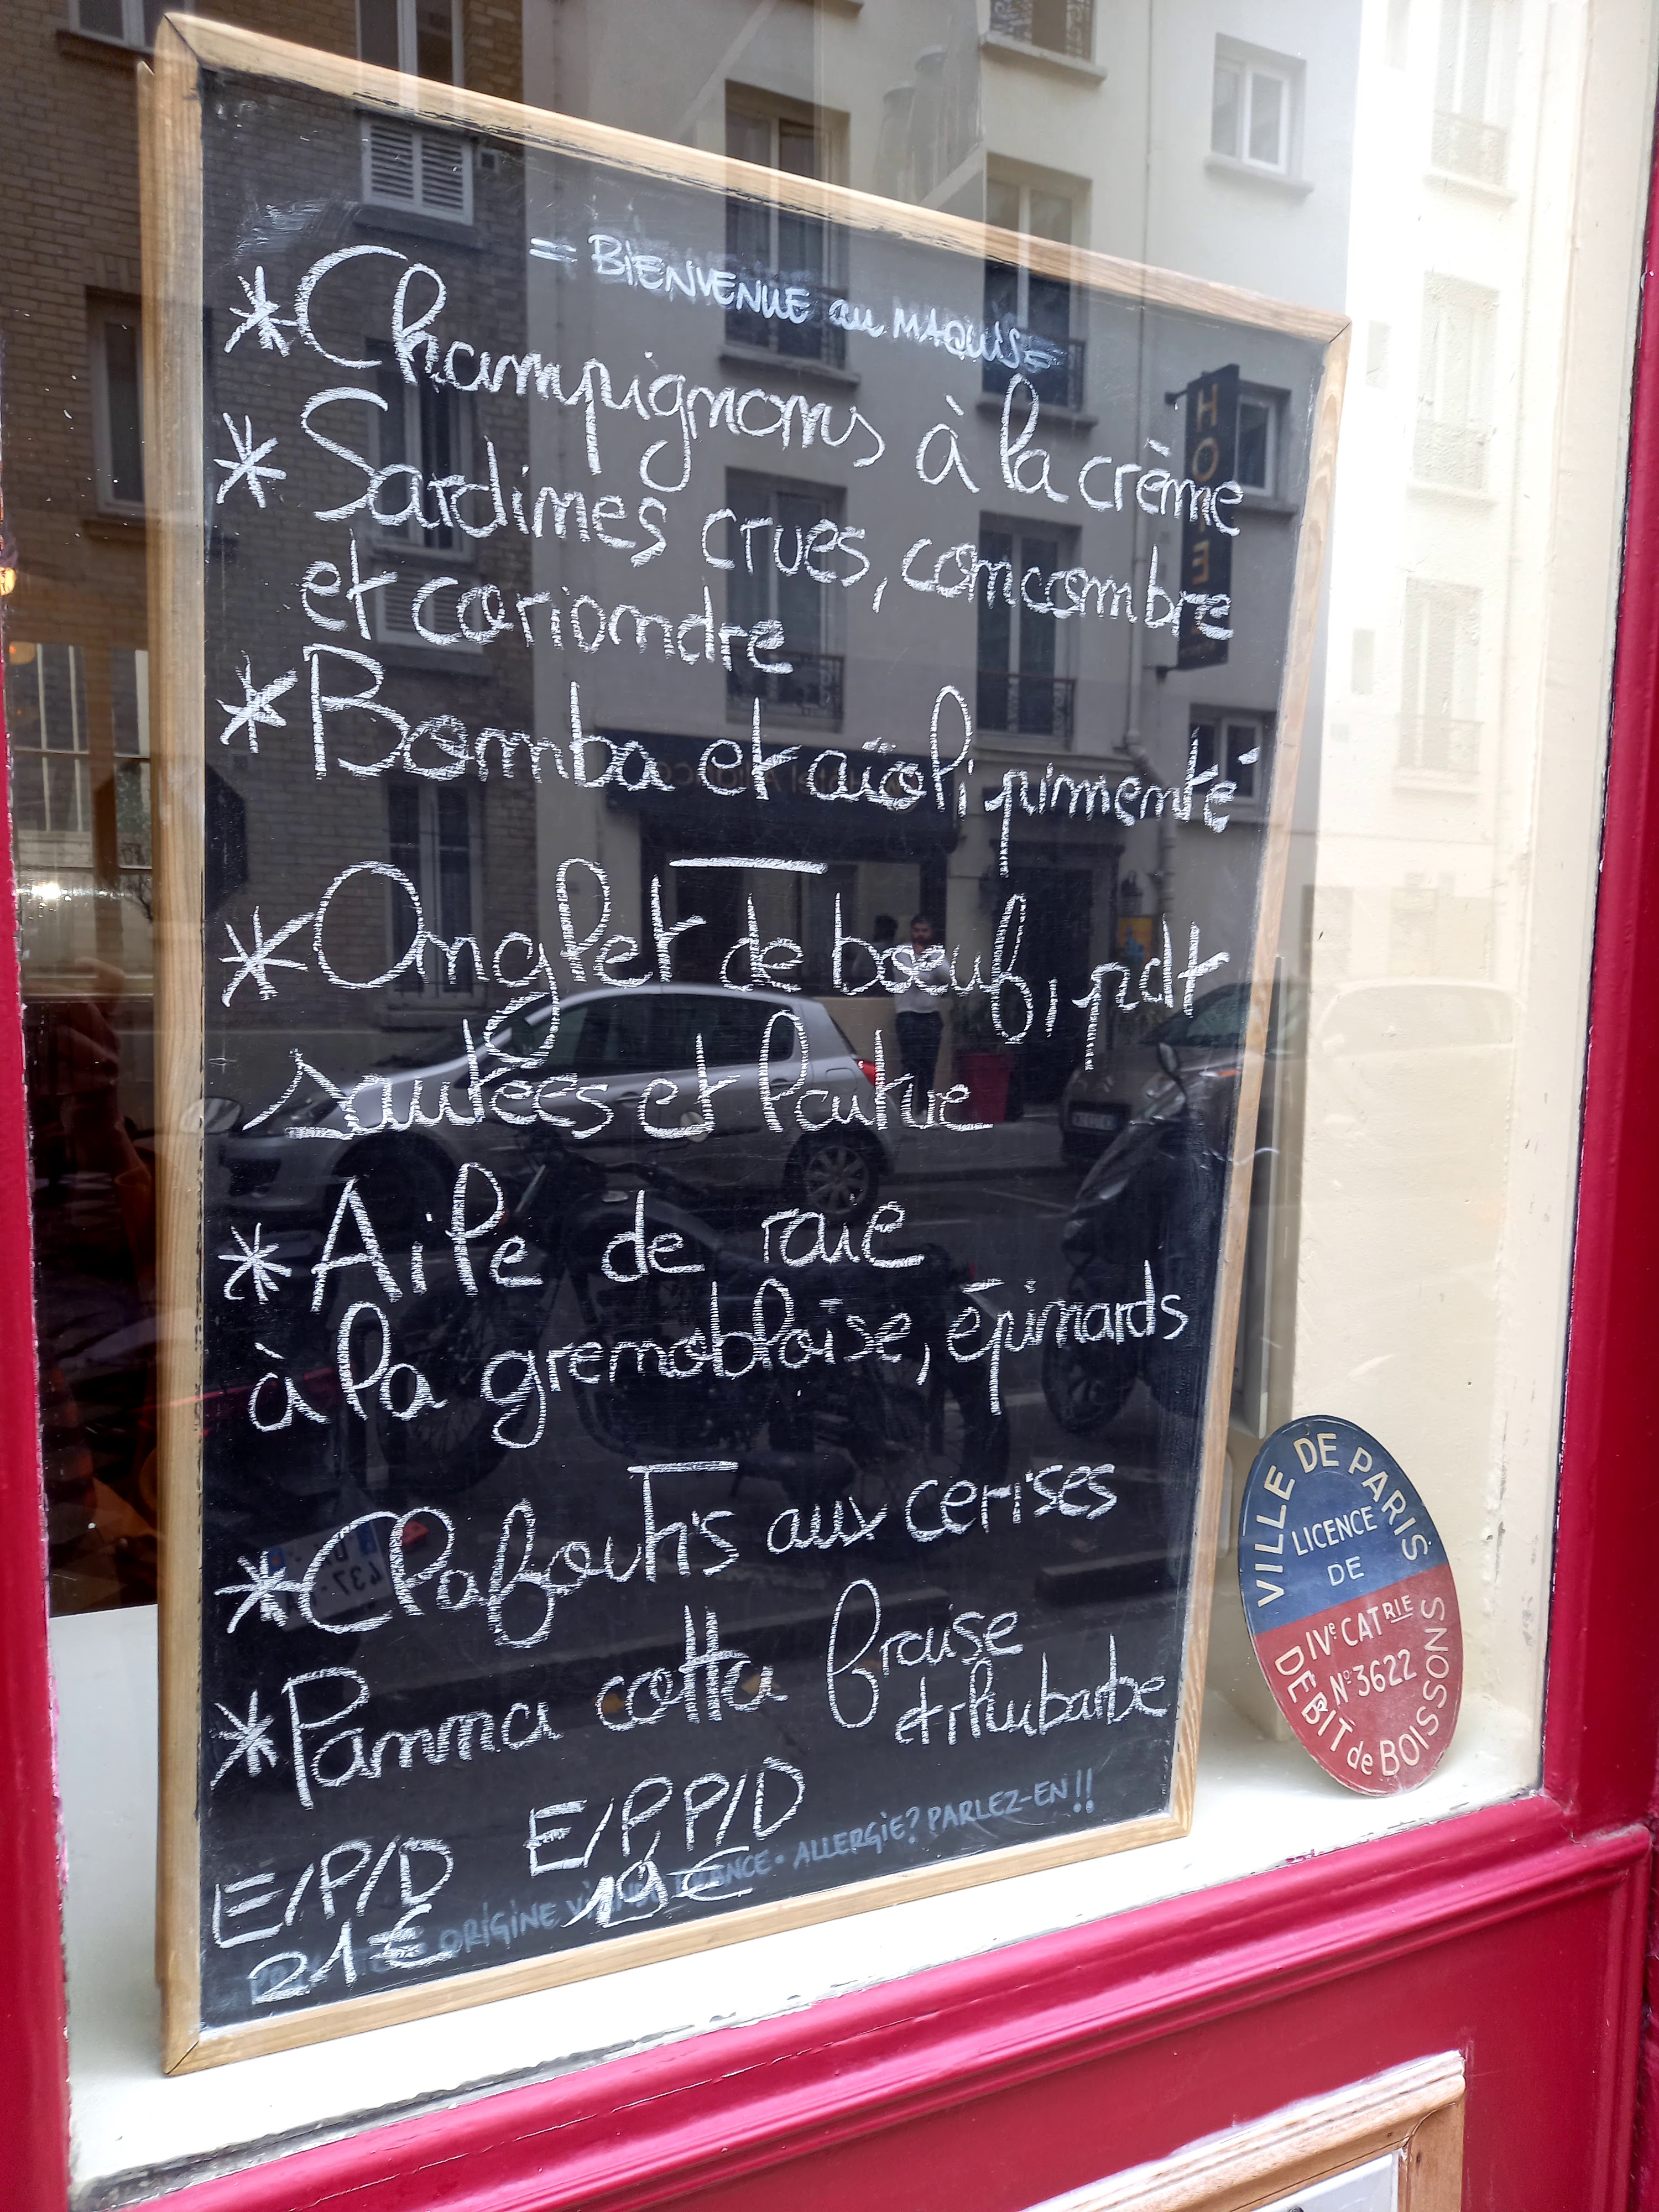 = BIENVENUE au MAQUIS =
* Champignons à la crème
* Sardines crues, concombre
et coriandre
* Bomba et aïoli pimenté
* Onglet de boeuf, pdt
sautées et laitue
* Aile de raie
à la grenobloise, épinards
* Clafoutis aux cerises
* Panna cotta fraise
et rhubarbe
E/P/D
21€
E/P, P/D
19€
ORIGINE VIANDE FRANCE • ALLERGIE? PARLEZ-EN!!
HOTEL
VILLE DE PARIS
LICENCE
DE
IVe CATRIE
No 3622
DEBIT de BOISSONS